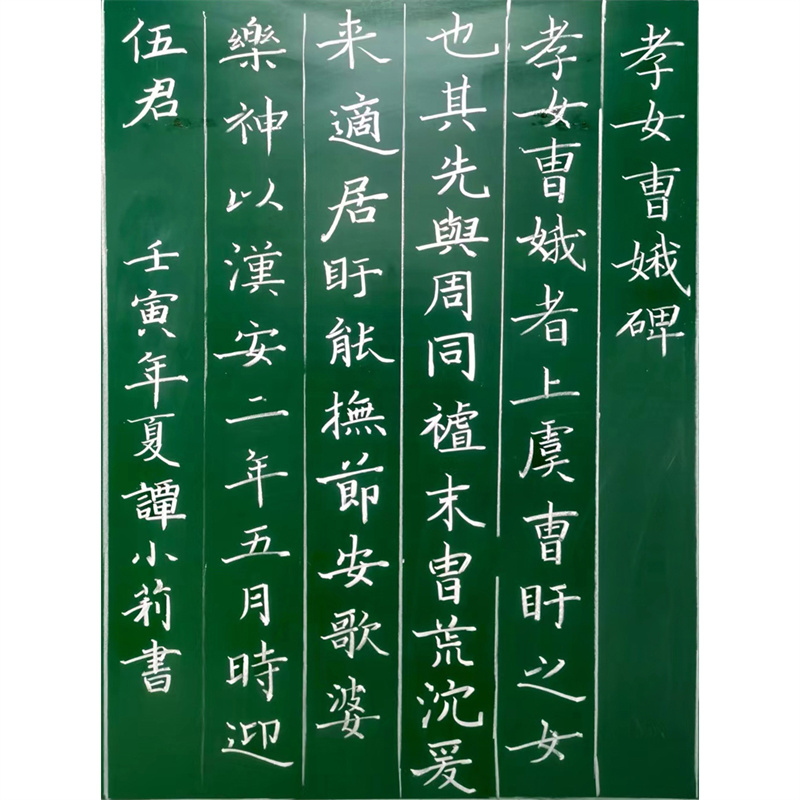 孝女曺娥碑
孝女曺娥者上虞曺盱之女
也其先與周同末胄荒沈爰
来適居盱能撫節安歌婆
樂神以漢安二年五月時迎
伍君 壬寅年夏譚小莉書